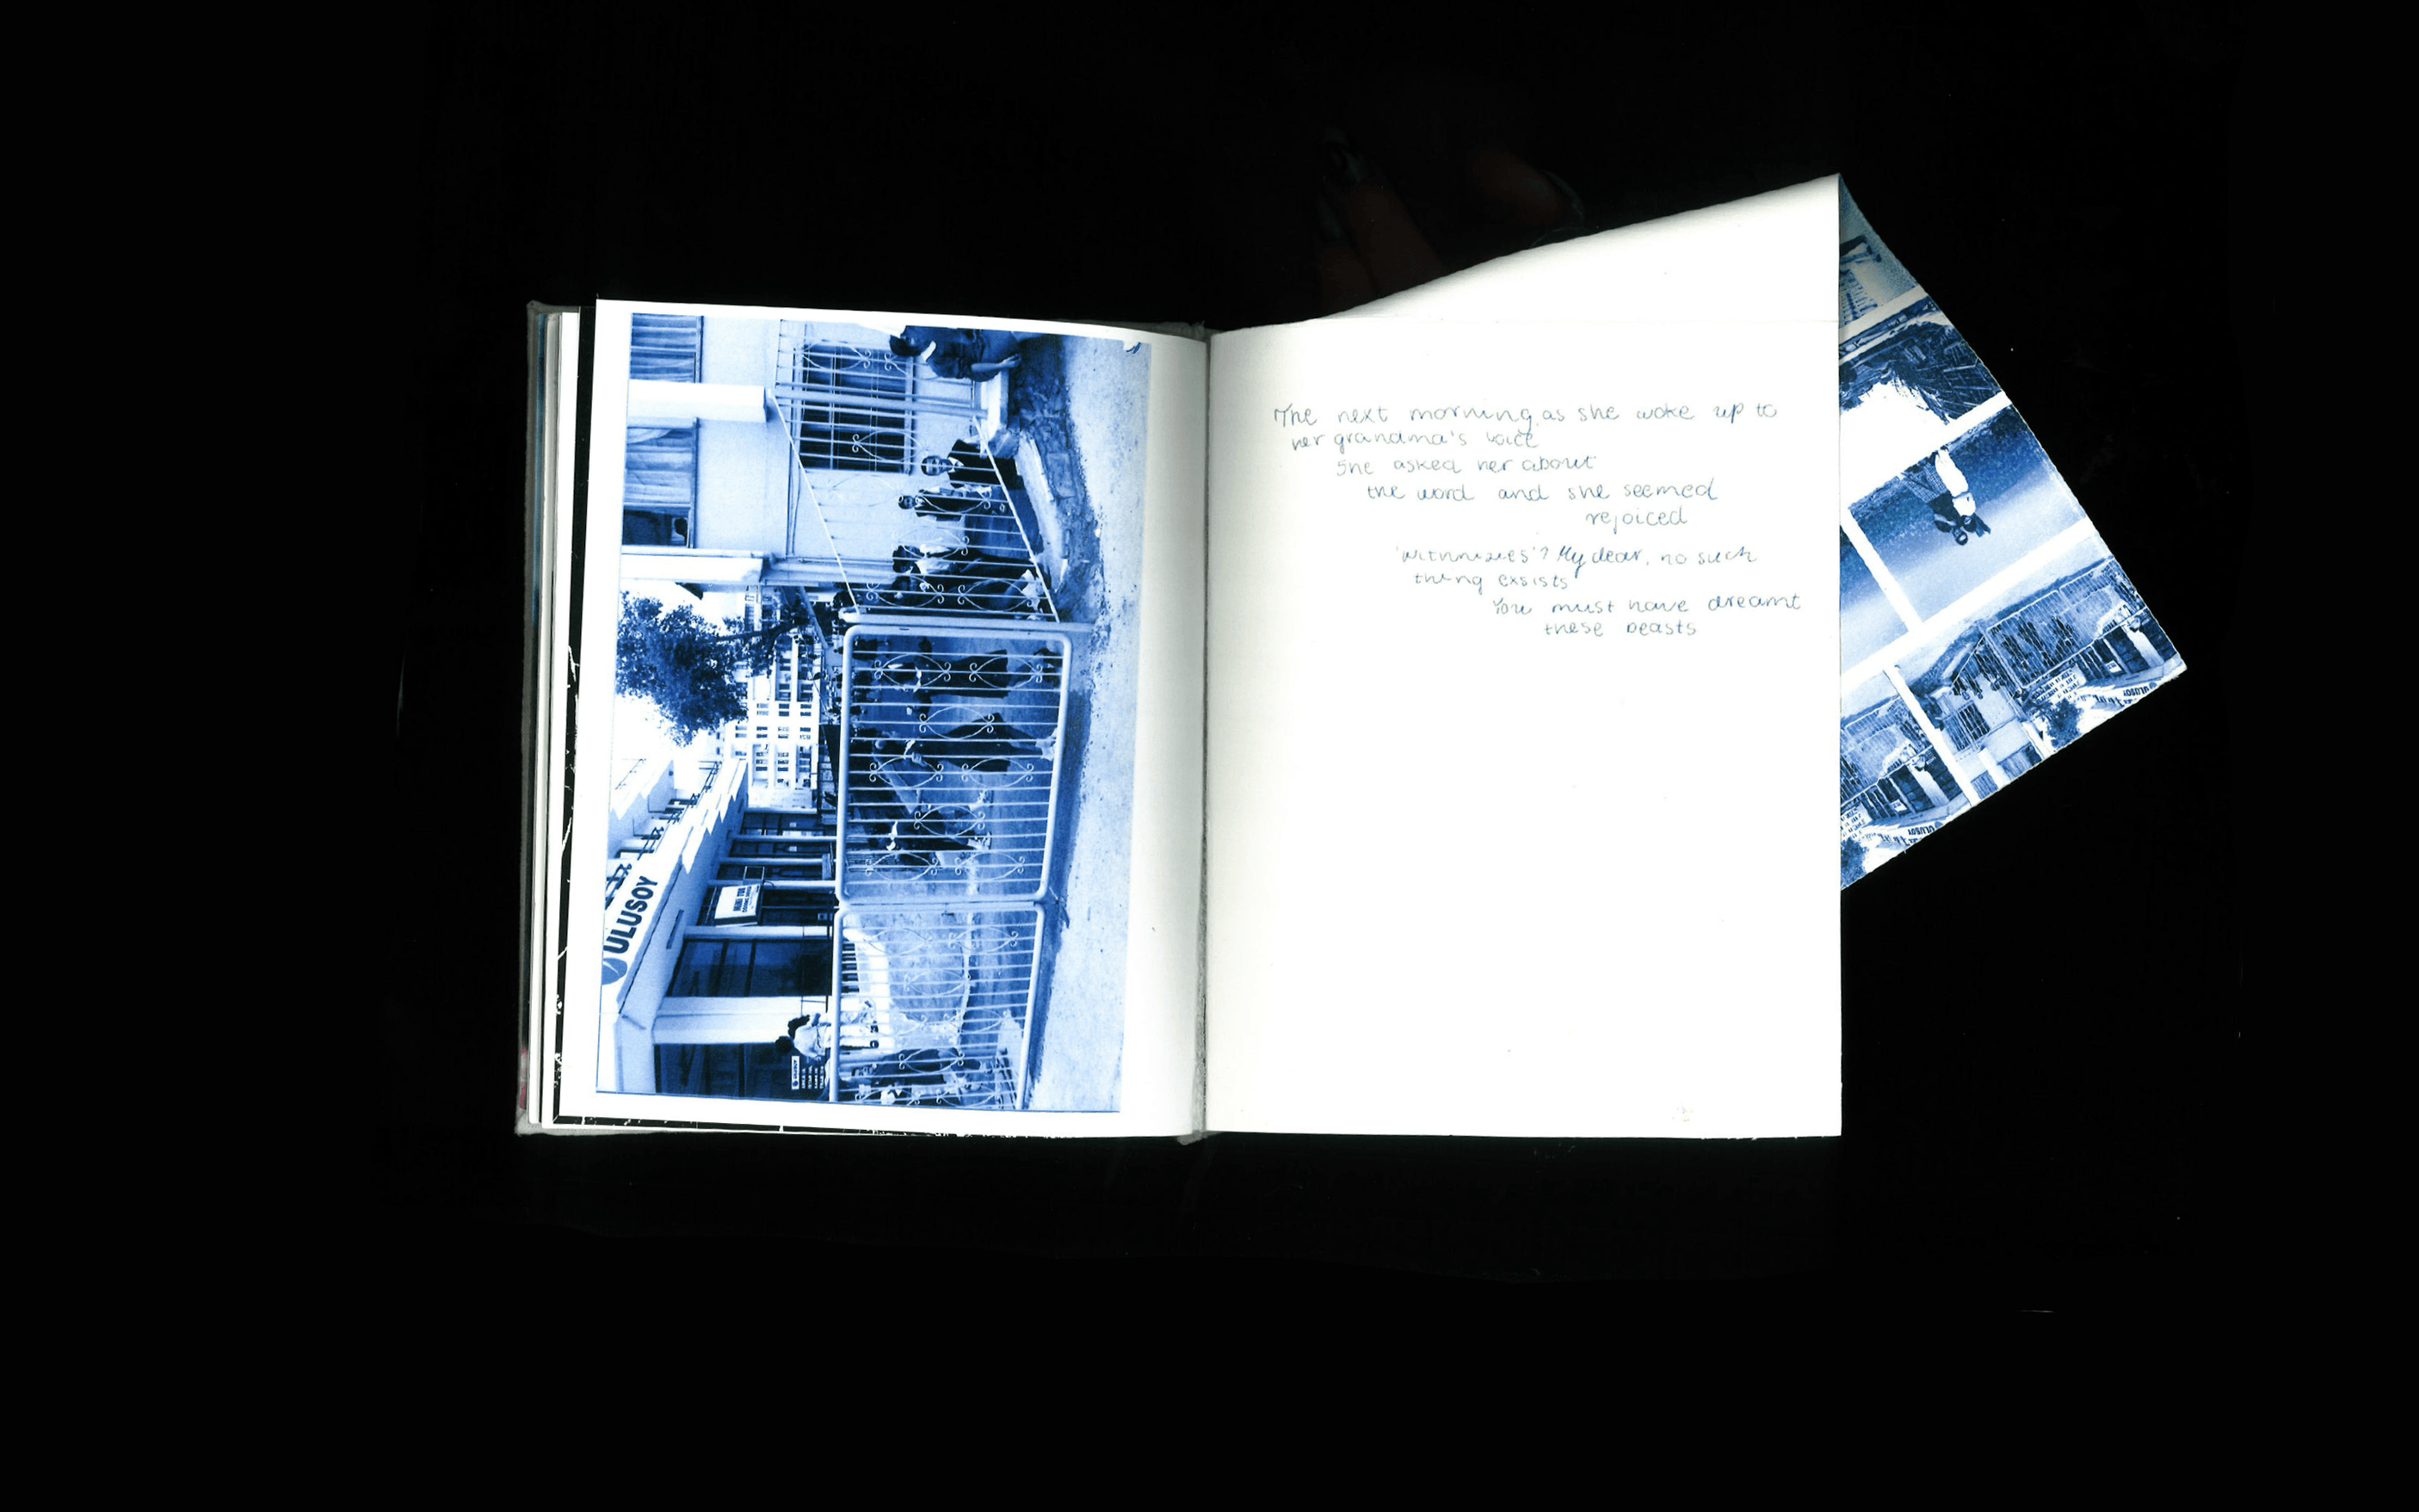 ULUSOY
The next morning, as she woke up to
her grandma's voice
She asked her about
the word and she seemed
rejoiced
'witnnizees'? My dear, no such
thing exsists
You must have dreamt
these beasts
ULUSOY
ULUSOY